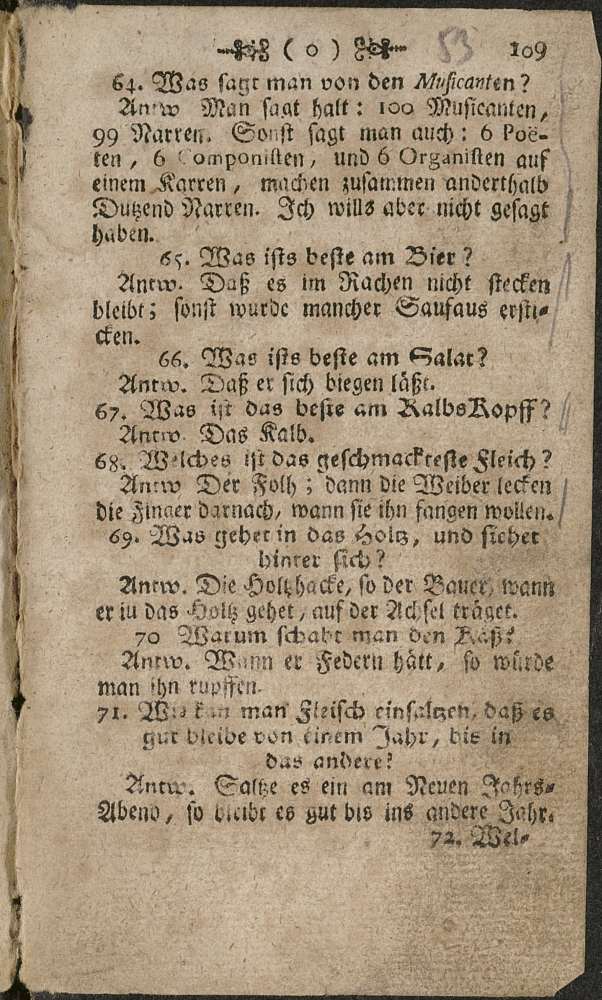 ( 0 ) 53 109
64. Was sagt man von den Musicanten?
Antw Man sagt halt: 100 Musicanten,
99 Narren. Sonst sagt man auch: 6 Poë-
ten, 6 Componisten, und 6 Organisten auf
einem Karren, machen zusammen anderthalb
Dutzend Narren. Ich wills aber nicht gesagt
haben.
65. Was ists beste am Bier?
Antw. Daß es im Rachen nicht stecken
bleibt; sonst wurde mancher Saufaus ersti-
cken.
66. Was ists beste am Salat?
Antw. Daß er sich biegen läßt.
67. Was ist das beste am KalbsKopff?
Antw. Das Kalb.
68. Welches ist das geschmackteste Fleich?
Antw Der Folh; dann die Weiber lecken
die Finger darnach, wann sie ihn fangen wollen.
69. Was gehet in das Holtz, und siehet
hinter sich?
Antw. Die Holtzhacke, so der Bauer, wann
er in das Holtz gehet, auf der Achsel träget.
70 Warum schabt man den Käß?
Antw. Wann er Federn hätt, so würde
man ihn rupffen.
71. Wie kan man Fleisch einsaltzen, daß es
gut bleibe von einem Jahr, bis in
das andere?
Antw. Saltze es ein am Neuen Jahrs-
Abend, so bleibt es gut bis ins andere Jahr.
72. Wel-